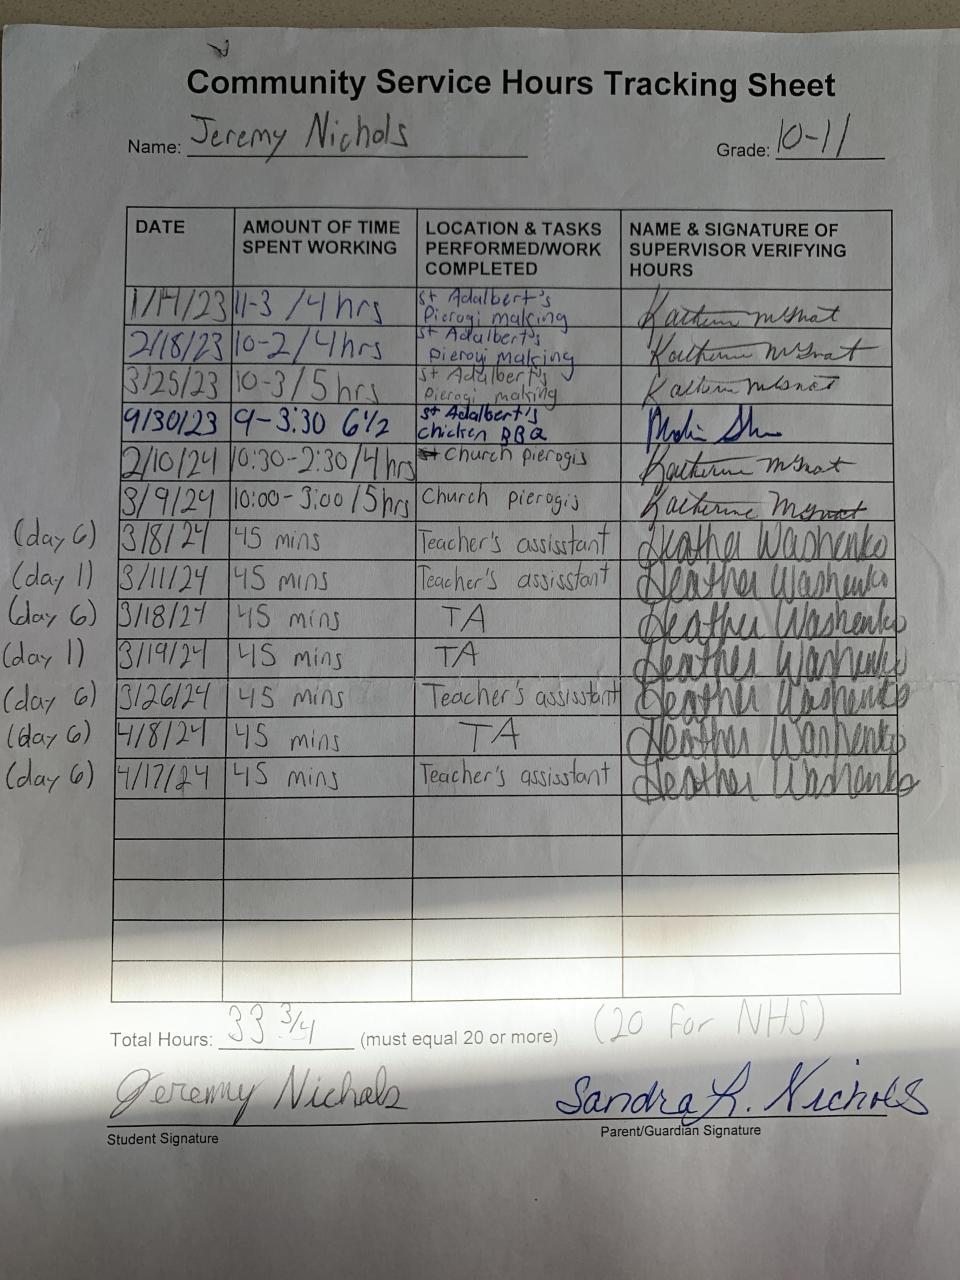 Community Service Hours Tracking Sheet
Name: Jeremy Nichols
Grade: 10-11
DATE
AMOUNT OF TIME
SPENT WORKING
LOCATION & TASKS
PERFORMED/WORK
COMPLETED
NAME & SIGNATURE OF
SUPERVISOR VERIFYING
HOURS
1/14/23 11-3 /4 hrs St Adalbert's
Pierogi making
2/18/23 10-2 /4hrs St Adalbert's
Pierogi making Katherine
3/25/23 10-3/5 hrs St Adalbert's
Pierogi making
9/30/23 9-3:30 6½ St Adalbert's
Chicken BBQ
2/10/24 10:30-2:30/4 hrs Church pierogis Katherine
3/9/24 10:00-3:00/5hrs Church pierogis Katherine
(day 6) 3/8/24 45 mins Teacher's assisstant Heather Washenko
(day 1) 3/11/24 45 mins Teacher's assisstant Heather Washenko
(day 6) 3/18/24 45 mins TA Heather Washenko
(day 1) 3/19/24 45 mins TA Heather Washenko
(day 6) 3/26/24 45 mins Teacher's assisstant Heather Washenko
(day 6) 4/8/24 45 mins TA Heather Washenko
(day 6) 4/17/24 45 mins Teacher's assisstant Heather Washenko
Total Hours: 33 3/4 (must equal 20 or more) (20 for NHS)
Jeremy Nichols
Sandra L. Nichols
Student Signature
Parent/Guardian Signature